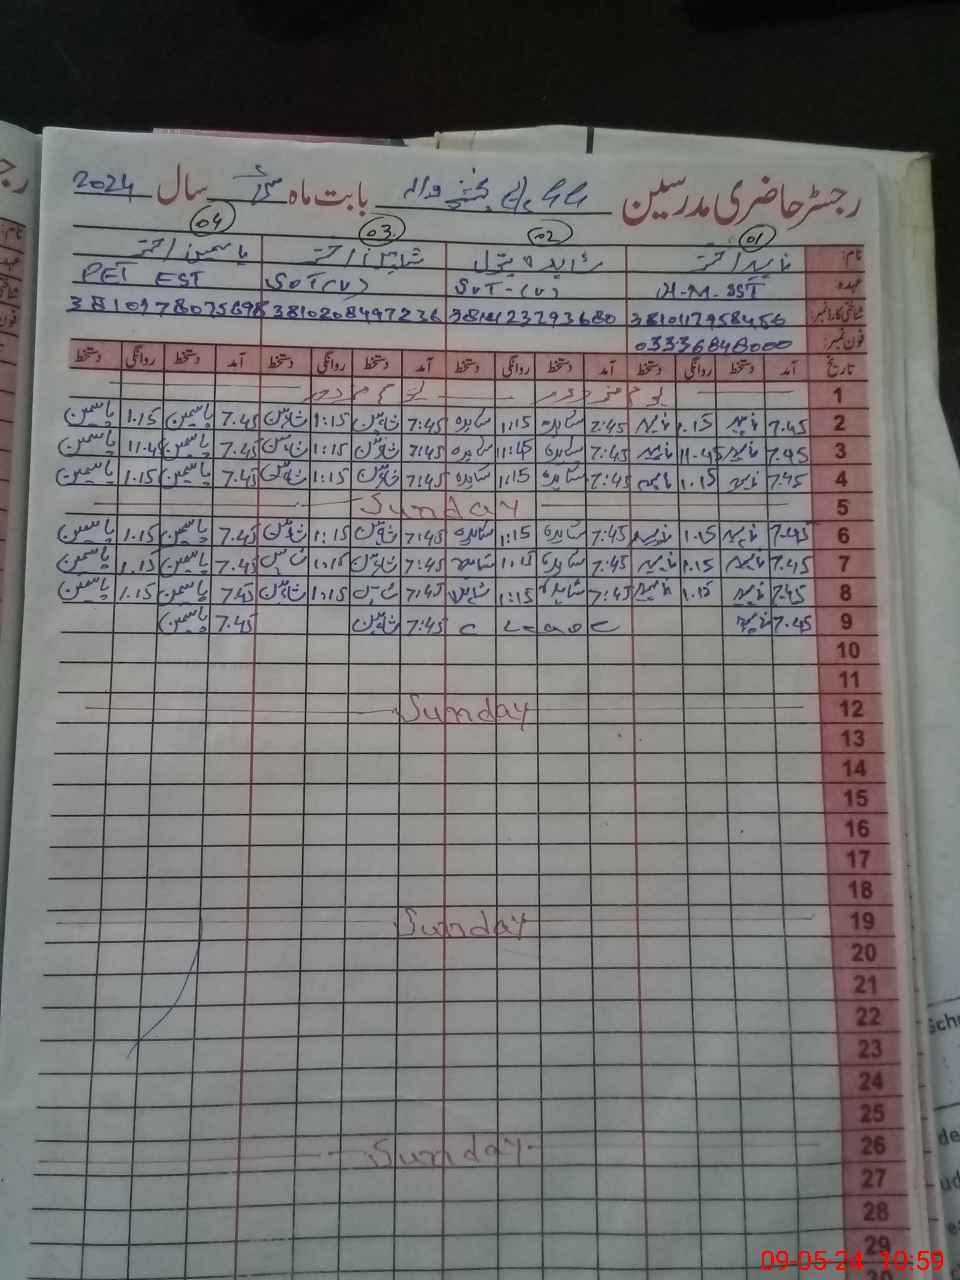 رجسٹر حاضری مدرسین بابت ماہ مئی سال 2024
01 02 03 04
نام: ناہید اختر شاہدہ بتول شاہین اختر یاسمین اختر
عہدہ: H.M. SST SVT-(V) SVT(V) PET EST
شناختی کارڈ نمبر:
فون نمبر: 03336848000
تاریخ آمد دستخط روانگی دستخط آمد دستخط روانگی دستخط آمد دستخط روانگی دستخط آمد دستخط روانگی دستخط
1 یوم مزدور یوم مزدور
2 7.45 ناہید 1.15 ناہید 7:45 شاہدہ 1:15 شاہدہ 7:45 شاہین 1:15 شاہین 7.45 یاسمین 1.15 یاسمین
3 7.45 ناہید 11.45 ناہید 7:45 شاہدہ 11:45 شاہدہ 7:45 شاہین 1:15 شاہین 7.45 یاسمین 11.45 یاسمین
4 7.45 ناہید 1.15 ناہید 7:45 شاہدہ 1:15 شاہدہ 7:45 شاہین 1:15 شاہین 7.45 یاسمین 1.15 یاسمین
5 Sunday
6 7.45 ناہید 1.15 ناہید 7:45 شاہدہ 1:15 شاہدہ 7:45 شاہین 1:15 شاہین 7.45 یاسمین 1.15 یاسمین
7 7.45 ناہید 1.15 ناہید 7:45 شاہدہ 1:15 شاہدہ 7:45 شاہین 1:15 شاہین 7.45 یاسمین 1.15 یاسمین
8 7.45 ناہید 1.15 ناہید 7:45 شاہدہ 1:15 شاہدہ 7:45 شاہین 1:15 شاہین 7.45 یاسمین 1.15 یاسمین
9 7.45 ناہید 7:45 شاہین 7.45 یاسمین
10
11
12 Sunday
13
14
15
16
17
18
19 Sunday
20
21
22
23
24
25
26 Sunday
27
28
29
09-05-24 10:59